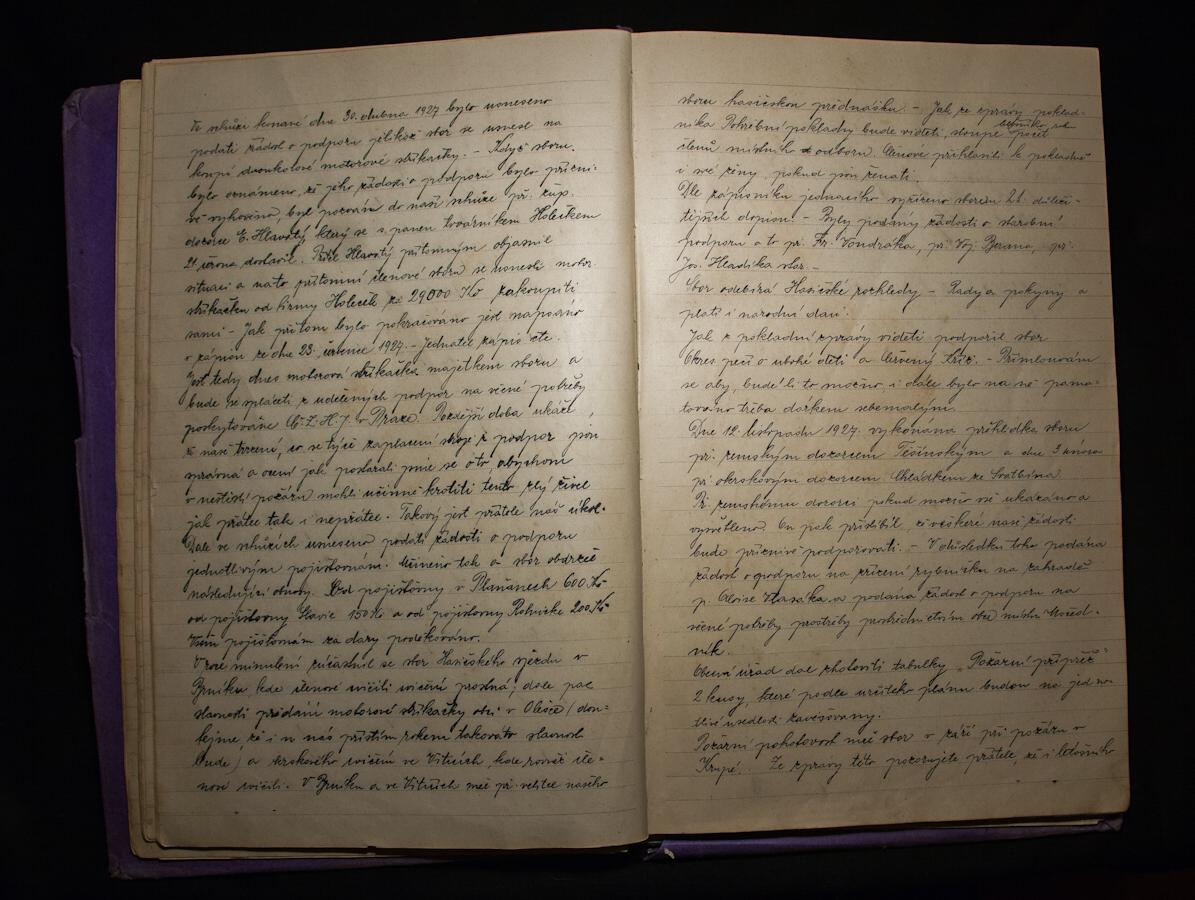 Ve schůzi konané dne 30. dubna 1927 bylo usneseno
podati žádost o podporu jelikož sbor se usnesl na
koupi dvoukolové motorové stříkačky. – Když sboru
bylo oznámeno, že jeho žádosti o podporu bylo přízni-
vě vyhověno, byl pozván do naší schůze př. žup.
dozorce E. Hlavatý, který se s panem továrníkem Holečkem
21 února dostavil. Př. Hlavatý přítomným objasnil
situaci a na to přítomní členové sboru se usnesli motor.
stříkačku od firmy Holeček za 29000 Kč zakoupiti
sami – Jak přitom bylo pokračováno jest napsáno
v zápisu ze dne 23. července 1927. – Jednatel zápis čte.
Jest tedy dnes motorová stříkačka majetkem sboru a
bude se spláceti z udělených podpor na věcné potřeby
poskytované Č.Z.H.J. v Praze. Pozdější doba ukáže,
že naše tvrzení, co se týče zaplacení stroje z podpor jsou
správná a ocení jak postarali jsme se o to, abychom
v neštěstí požáru mohli účinně krotiti tento zlý živel
jak přátel tak i nepřátel. Takový jest přátelé náš úkol.
Dále ve schůzích usneseno podati žádosti o podporu
jednotlivým pojišťovnám. Učiněno tak a sbor obdržel
následující obnosy. Od pojišťovny v Plaňanech 600 Kč
od pojišťovny Slavie 150 Kč a od pojišťovny Rolnické 200 Kč
Všem pojišťovnám za dary poděkováno.
V roce minulém zúčastnil se sbor Hasičského sjezdu v
Brníku, kde členové cvičili cvičení prostná; dále pak
slavnosti předání motorové stříkačky obci v Oleško (dou-
fejme, že i u nás příštím rokem takováto slavnost
bude) a okrskového cvičení ve Viticích, kde rovněž čle-
nové cvičili. V Brníku a ve Viticích měl př. velitel našeho
sboru hasičskou přednášku. – Jak ze zprávy poklad-
níka Pohřební pokladny bude viděti, stoupl počet
členů místního odboru. Členové přihlásili k pokladně
i své ženy, pokud jsou ženati.
Dle zápisníku jednacího vyřízeno sborem 21 důleži-
tějších dopisů. – Byly podány žádosti o starobní
podporu a to př. Fr. Vondráka, př. Voj. Berana, př.
Jos. Hladíka star. –
Sbor odebírá Hasičské rozhledy – Rady a pokyny a
platí i národní daň.
Jak z pokladní zprávy viděti podpořil sbor
Okres. péči o ubohé děti a Červený kříž. – Přimlouvám
se aby, bude-li to možno, i dále bylo na ně pama-
továno třeba dárkem sebemalým.
Dne 12. listopadu 1927. vykonána přehlídka sboru
př. zemským dozorcem Těšínským a dne 3 února
př. okrskovým dozorcem Chládkem ze Svatbína.
Př. zemskému dozorci pokud možno vše ukázáno a
vysvětleno. On pak přislíbil, že veškeré naše žádosti
bude příznivě podporovati. – V důsledku toho podána
žádost o podporu na zřízení rybníku na zahradě
p. Aloise Vlasáka a podána žádost o podporu na
věcné potřeby prostřednictvím obec.
Obecní úřad dal zhotoviti tabulky „Požární přípřež“
2 kusy, které podle určitého plánu budou na jedno-
tlivé usedlosti zavěšovány.
Požární pohotovost měl sbor v září při požáru v
Krupé. Ze zprávy této pozorujete přátelé, že i loňského